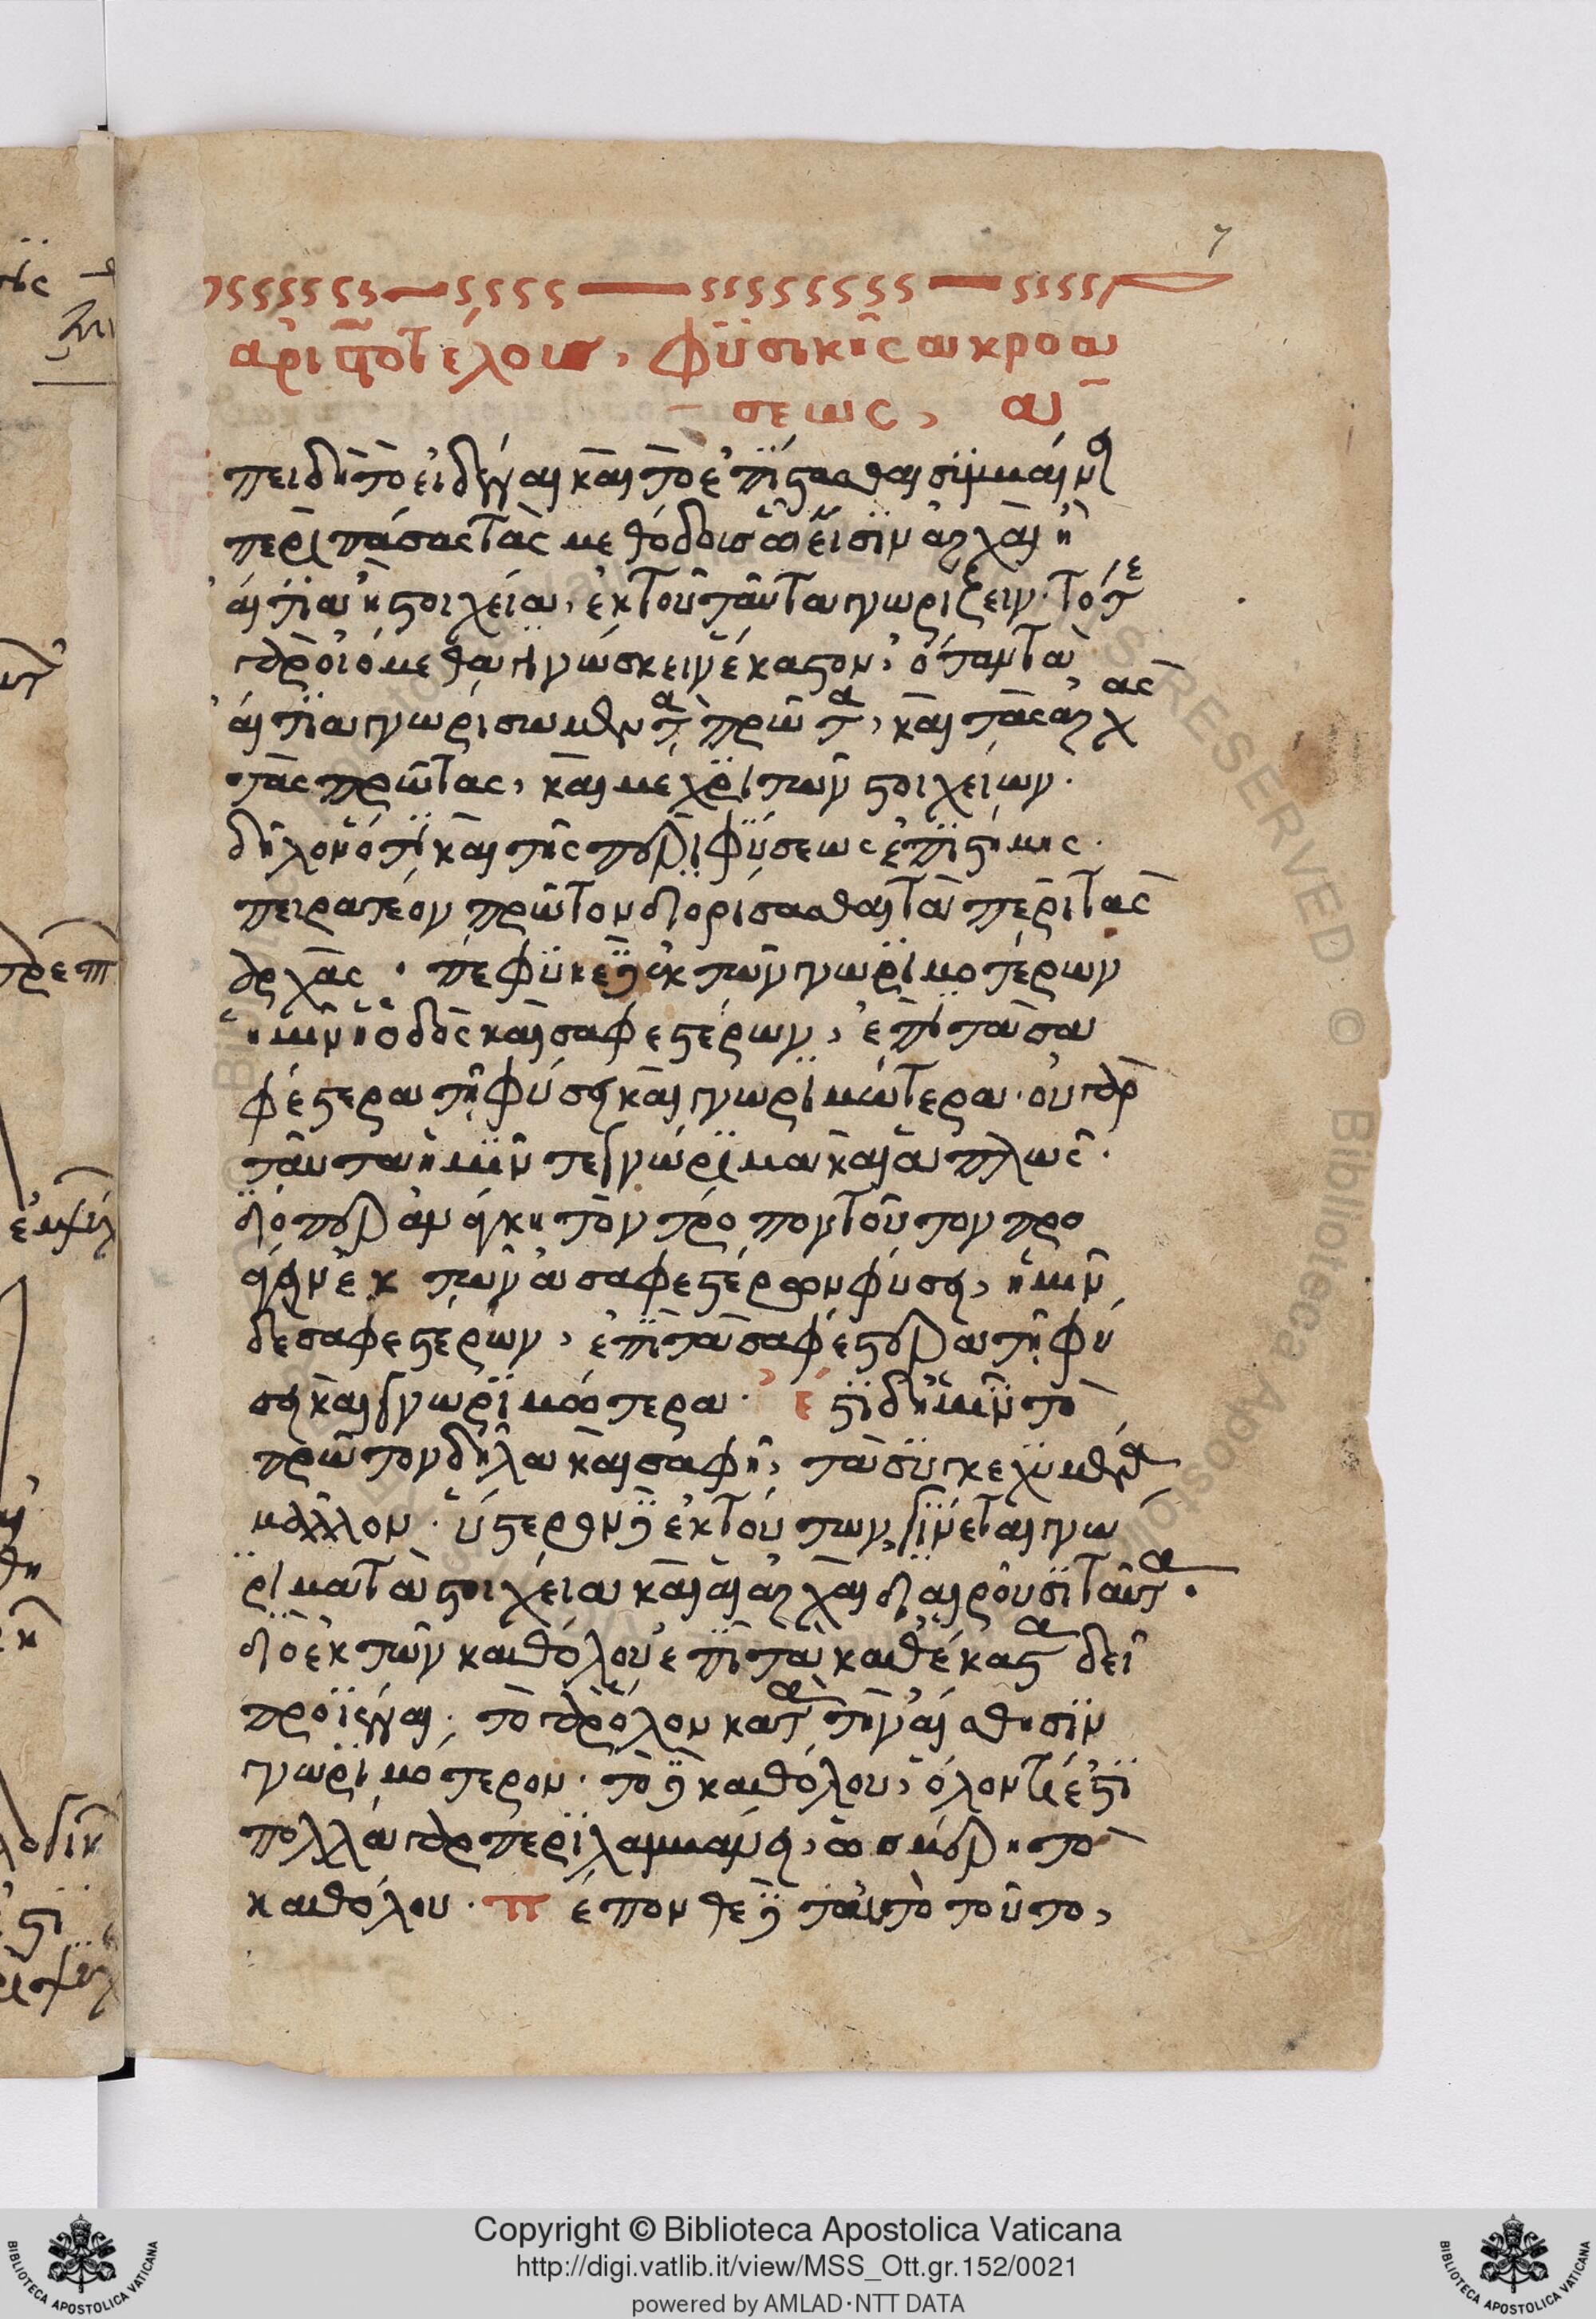 7
ἀριστοτέλους, φυσικῆς ἀκροά
σεως, α
πειδὴ τὸ εἰδέναι καὶ τὸ ἐπίστασθαι συμβαίνει
περὶ πάσας τὰς μεθόδους ὧν εἰσὶν ἀρχαὶ ἢ
αἴτια ἢ στοιχεῖα, ἐκ τοῦ ταῦτα γνωρίζειν· τότε
γὰρ οἰόμεθα γινώσκειν ἕκαστον, ὅταν τὰ
αἴτια γνωρίσωμεν τὰ πρῶτα, καὶ τὰς ἀρχὰς
τὰς πρώτας, καὶ μέχρι τῶν στοιχείων·
δῆλον ὅτι καὶ τῆς περὶ φύσεως ἐπιστήμης·
πειρατέον πρῶτον διορίσασθαι τὰ περὶ τὰς
ἀρχὰς· πέφυκε δὲ ἐκ τῶν γνωριμοτέρων
ἡμῖν ἡ ὁδὸς καὶ σαφεστέρων, ἐπὶ τὰ σα
φέστερα τῇ φύσει καὶ γνωριμώτερα· οὐ γὰρ
ταῦτα ἡμῖν τε γνώριμα καὶ ἁπλῶς·
διόπερ ἀνάγκη τὸν τρόπον τοῦτον προ
άγειν ἐκ τῶν ἀσαφεστέρων φύσει, ἡμῖν
δὲ σαφεστέρων, ἐπὶ τὰ σαφέστερα τῇ φύ
σει καὶ γνωριμώτερα· ἔστι δὴ ἡμῖν τὸ
πρῶτον δῆλα καὶ σαφῆ, τὰ συγκεχυμένα
μᾶλλον· ὕστερον δὲ ἐκ τούτων γίνεται γνώ
ριμα τὰ στοιχεῖα καὶ αἱ ἀρχαὶ διαιροῦσι ταῦτα·
διὸ ἐκ τῶν καθόλου ἐπὶ τὰ καθέκαστα δεῖ
προϊέναι· τὸ γὰρ ὅλον κατὰ τὴν αἴσθησιν
γνωριμότερον· τὸ δὲ καθόλου, ὅλον τι ἐστὶ
πολλὰ γὰρ περιλαμβάνει, ὡς μέρη τὸ
καθόλου· πέπονθε δὲ ταὐτὸ τοῦτο,
Copyright © Biblioteca Apostolica Vaticana
http://digi.vatlib.it/view/MSS_Ott.gr.152/0021
powered by AMLAD·NTT DATA
BIBLIOTECA APOSTOLICA VATICANA
BIBLIOTECA APOSTOLICA VATICANA